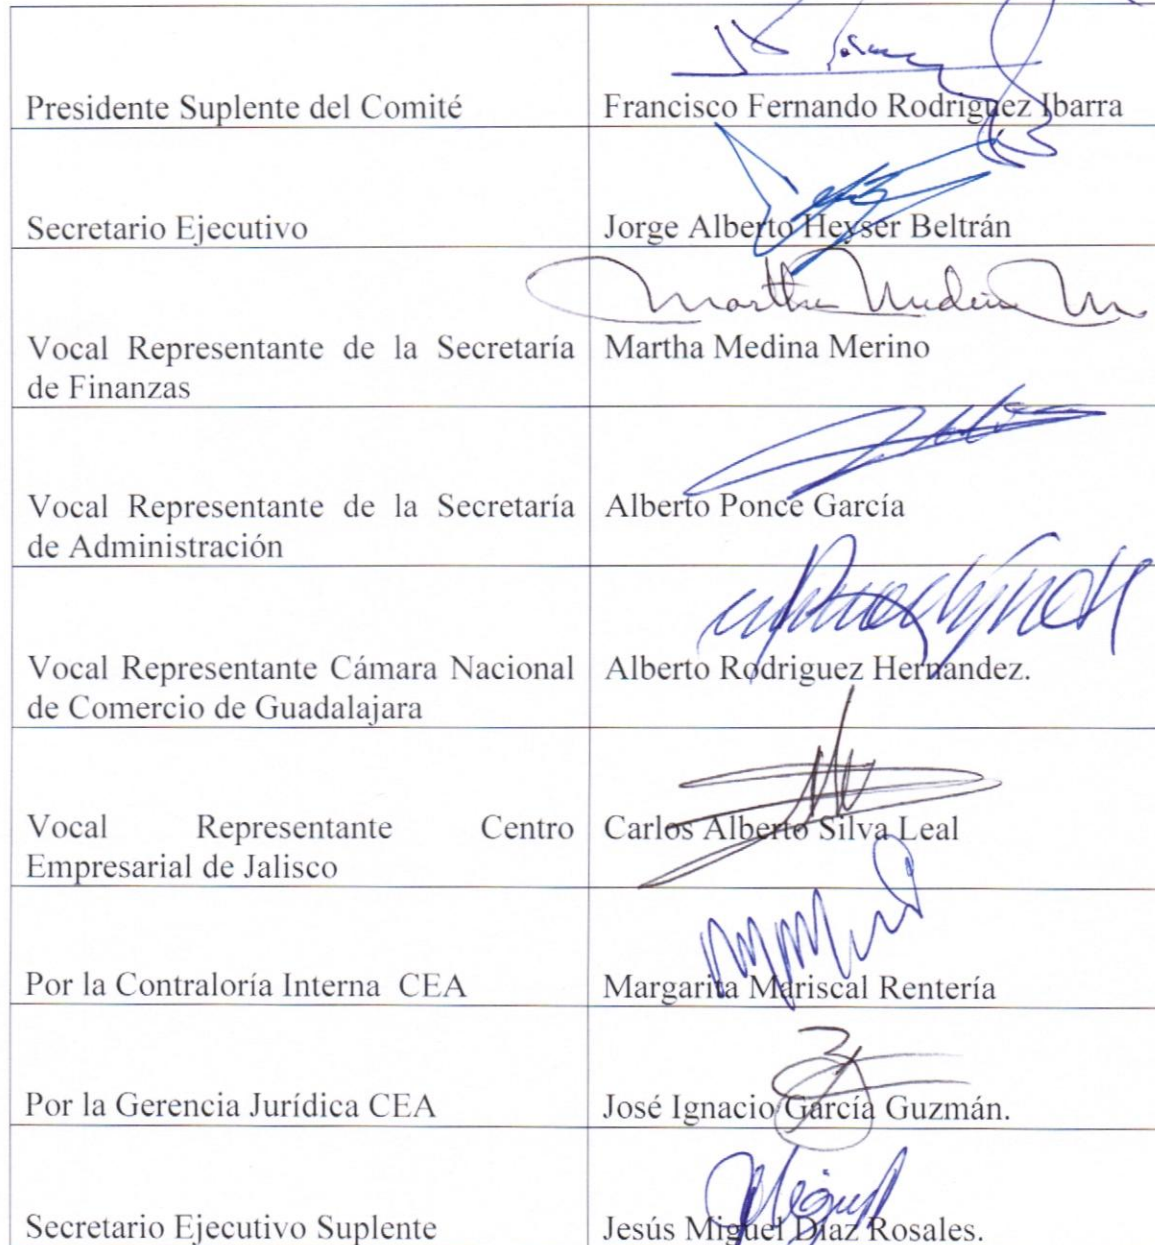 Presidente Suplente del Comité
Francisco Fernando Rodriguez Ibarra
Secretario Ejecutivo
Jorge Alberto Heyser Beltrán
Martha Medina M.
Vocal Representante de la Secretaría
de Finanzas
Martha Medina Merino
Vocal Representante de la Secretaría
de Administración
Alberto Ponce García
Vocal Representante Cámara Nacional
de Comercio de Guadalajara
Alberto Rodriguez Hernández.
Vocal Representante Centro
Empresarial de Jalisco
Carlos Alberto Silva Leal
Por la Contraloría Interna CEA
Margarita Mariscal Rentería
Por la Gerencia Jurídica CEA
José Ignacio García Guzmán.
Secretario Ejecutivo Suplente
Jesús Miguel Díaz Rosales.